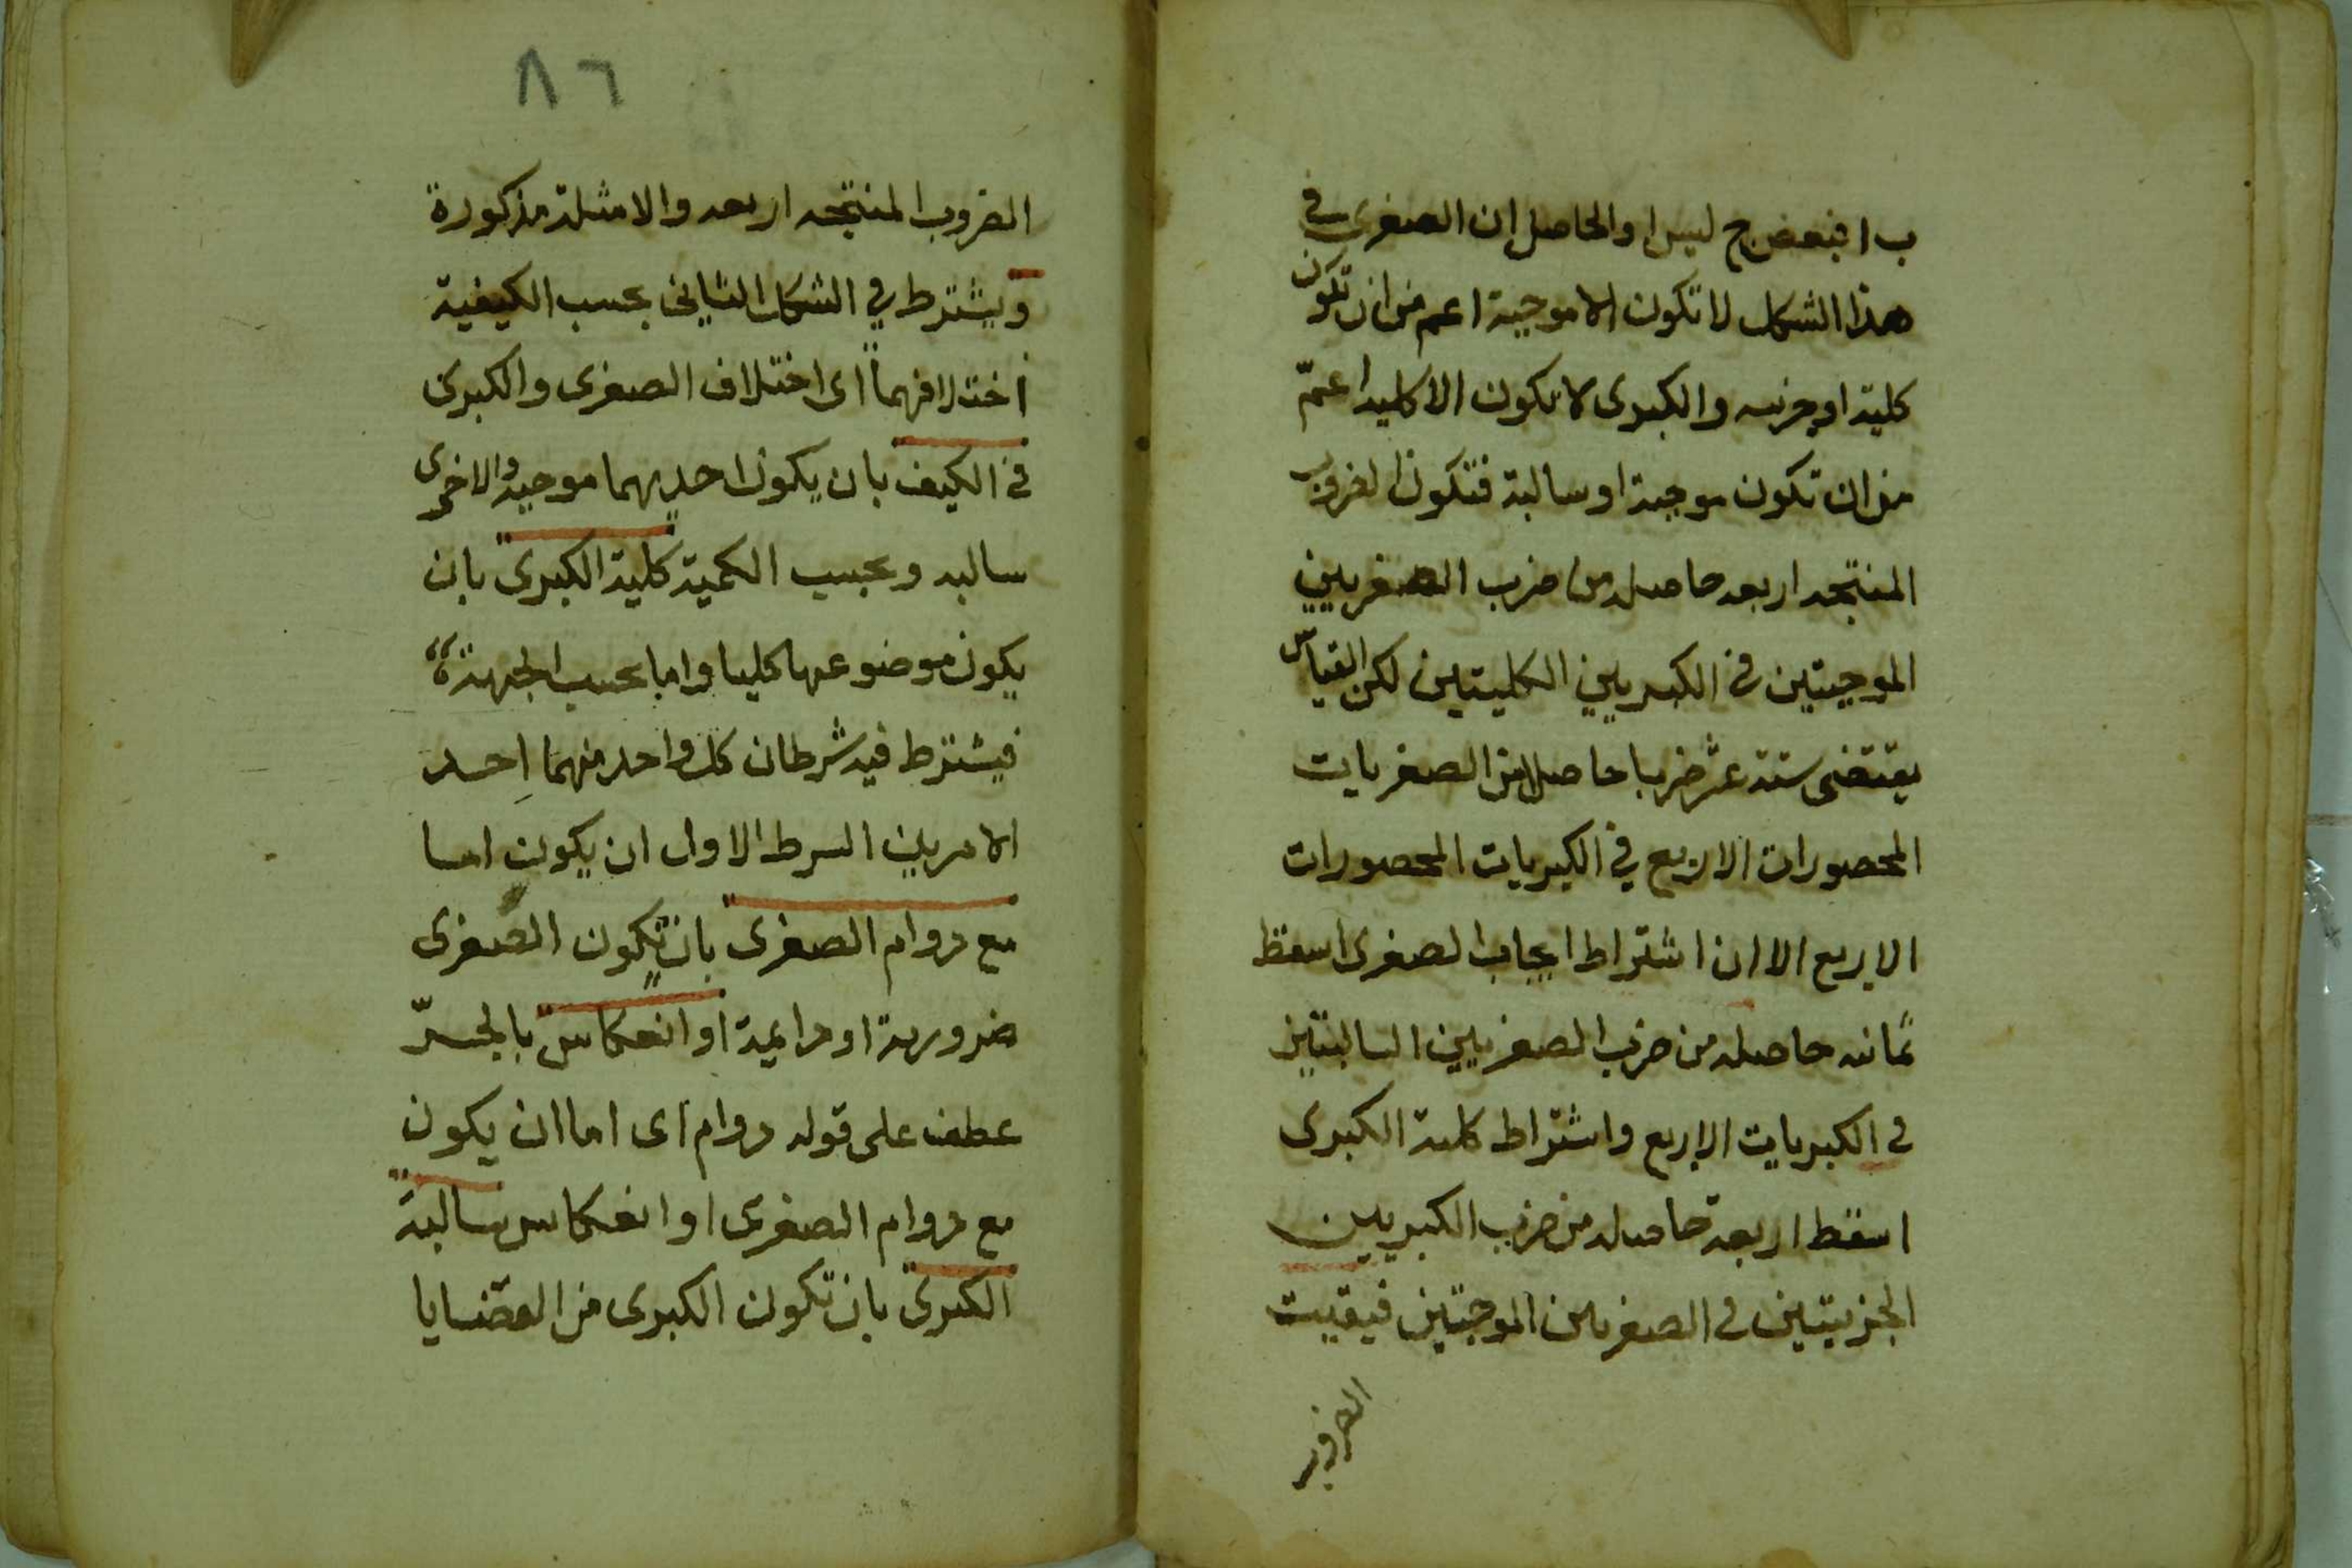 ب ا فبعض ج ليس ا والحاصل ان الصغرى في
هذا الشكل لا تكون الا موجبة اعم من ان تكون
كلية او جزئيه والكبرى لا تكون الا كليه اعمّ
من ان تكون موجبة او سالبة فتكون الضروب
المنتجه اربعه حاصله من ضرب الصغريين
الموجبتين في الكبريين الكليتين لكن القياس
يقتضى ستة عشر ضربا حاصلا من الصغريات
المحصورات الاربع في الكبريات المحصورات
الاربع الا ان اشتراط ايجاب الصغرى اسقط
ثمانيه حاصله من ضرب الصغريين السالبتين
في الكبريات الاربع واشتراط كلية الكبرى
اسقط اربعة حاصله من ضرب الكبريين
الجزييتين في الصغريين الموجبتين فبقيت
الضروب
٨٦
الضروب المنتجه اربعه والامثلة مذكورة
ويشترط في الشكل الثاني بحسب الكيفية
اختلافهما اى اختلاف الصغرى والكبرى
في الكيف بان يكون احديهما موجبة والاخرى
سالبه وبحسب الكمية كلية الكبرى بان
يكون موضوعها كليا واما بحسب الجهة
فيشترط فيه شرطان كل واحد منهما احد
الامرين الشرط الاول ان يكون اما
مع دوام الصغرى بان تكون الصغرى
ضرورية او دايمة او انعكاس بالجرّ
عطف على قوله دوام اى اما ان يكون
مع دوام الصغرى او انعكاس سالبة
الكبرى بان تكون الكبرى من القضايا